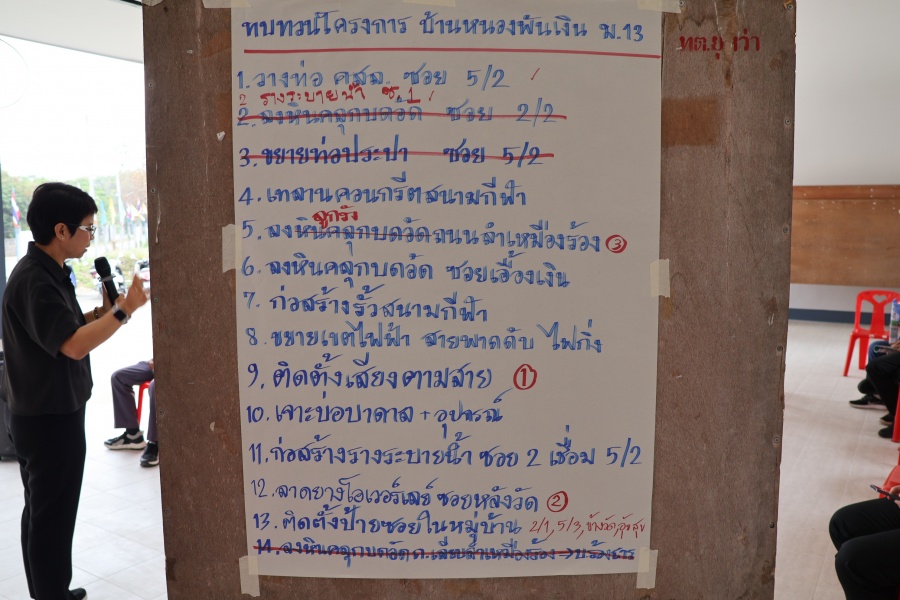 ทบทวนโครงการ บ้านหนองพันเงิน ม.13
ทต.ยุ ว่า
1. วางท่อ คสล. ซอย 5/2 /
2 รางระบายน้ำ ซ.1 /
2. ลงหินคลุกบดอัด ซอย 2/2
3. ขยายท่อประปา ซอย 5/2
4. เทลานคอนกรีตสนามกีฬา
ลูกรัง
5. ลงหินคลุกบดอัดถนนลำเหมืองร้อง ③
6. ลงหินคลุกบดอัด ซอยเอื้องเงิน
7. ก่อสร้างรั้วสนามกีฬา
8. ขยายเขตไฟฟ้า สายพาดดับ ไฟกิ่ง
9. ติดตั้งเสียงตามสาย ①
10. เจาะบ่อบาดาล + อุปกรณ์
11. ก่อสร้างรางระบายน้ำ ซอย 2 เชื่อม 5/2
12. ลาดยางโอเวอร์เลย์ ซอยหลังวัด ②
13. ติดตั้งป้ายซอยในหมู่บ้าน 2/1, 5/3, ข้างวัด,
14. ลงหินคลุกบดอัด ถ.เลียบลำเหมืองร้อง →